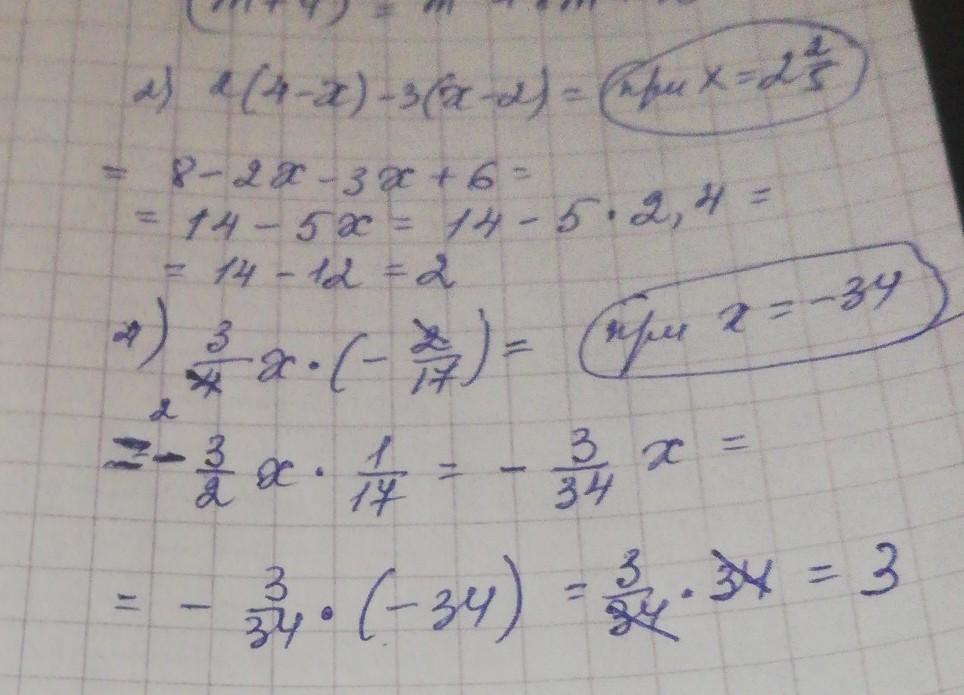 (m+4) = m
2) 2(4-x)-3(x-2) = при x=2 2/5
= 8-2x-3x+6=
= 14-5x = 14-5·2,4 =
= 14-12 = 2
2) 3/4 x·(-2/17)= при x=-34
2
=-3/2 x·1/17 = -3/34 x =
= -3/34·(-34) = 3/34·34 = 3